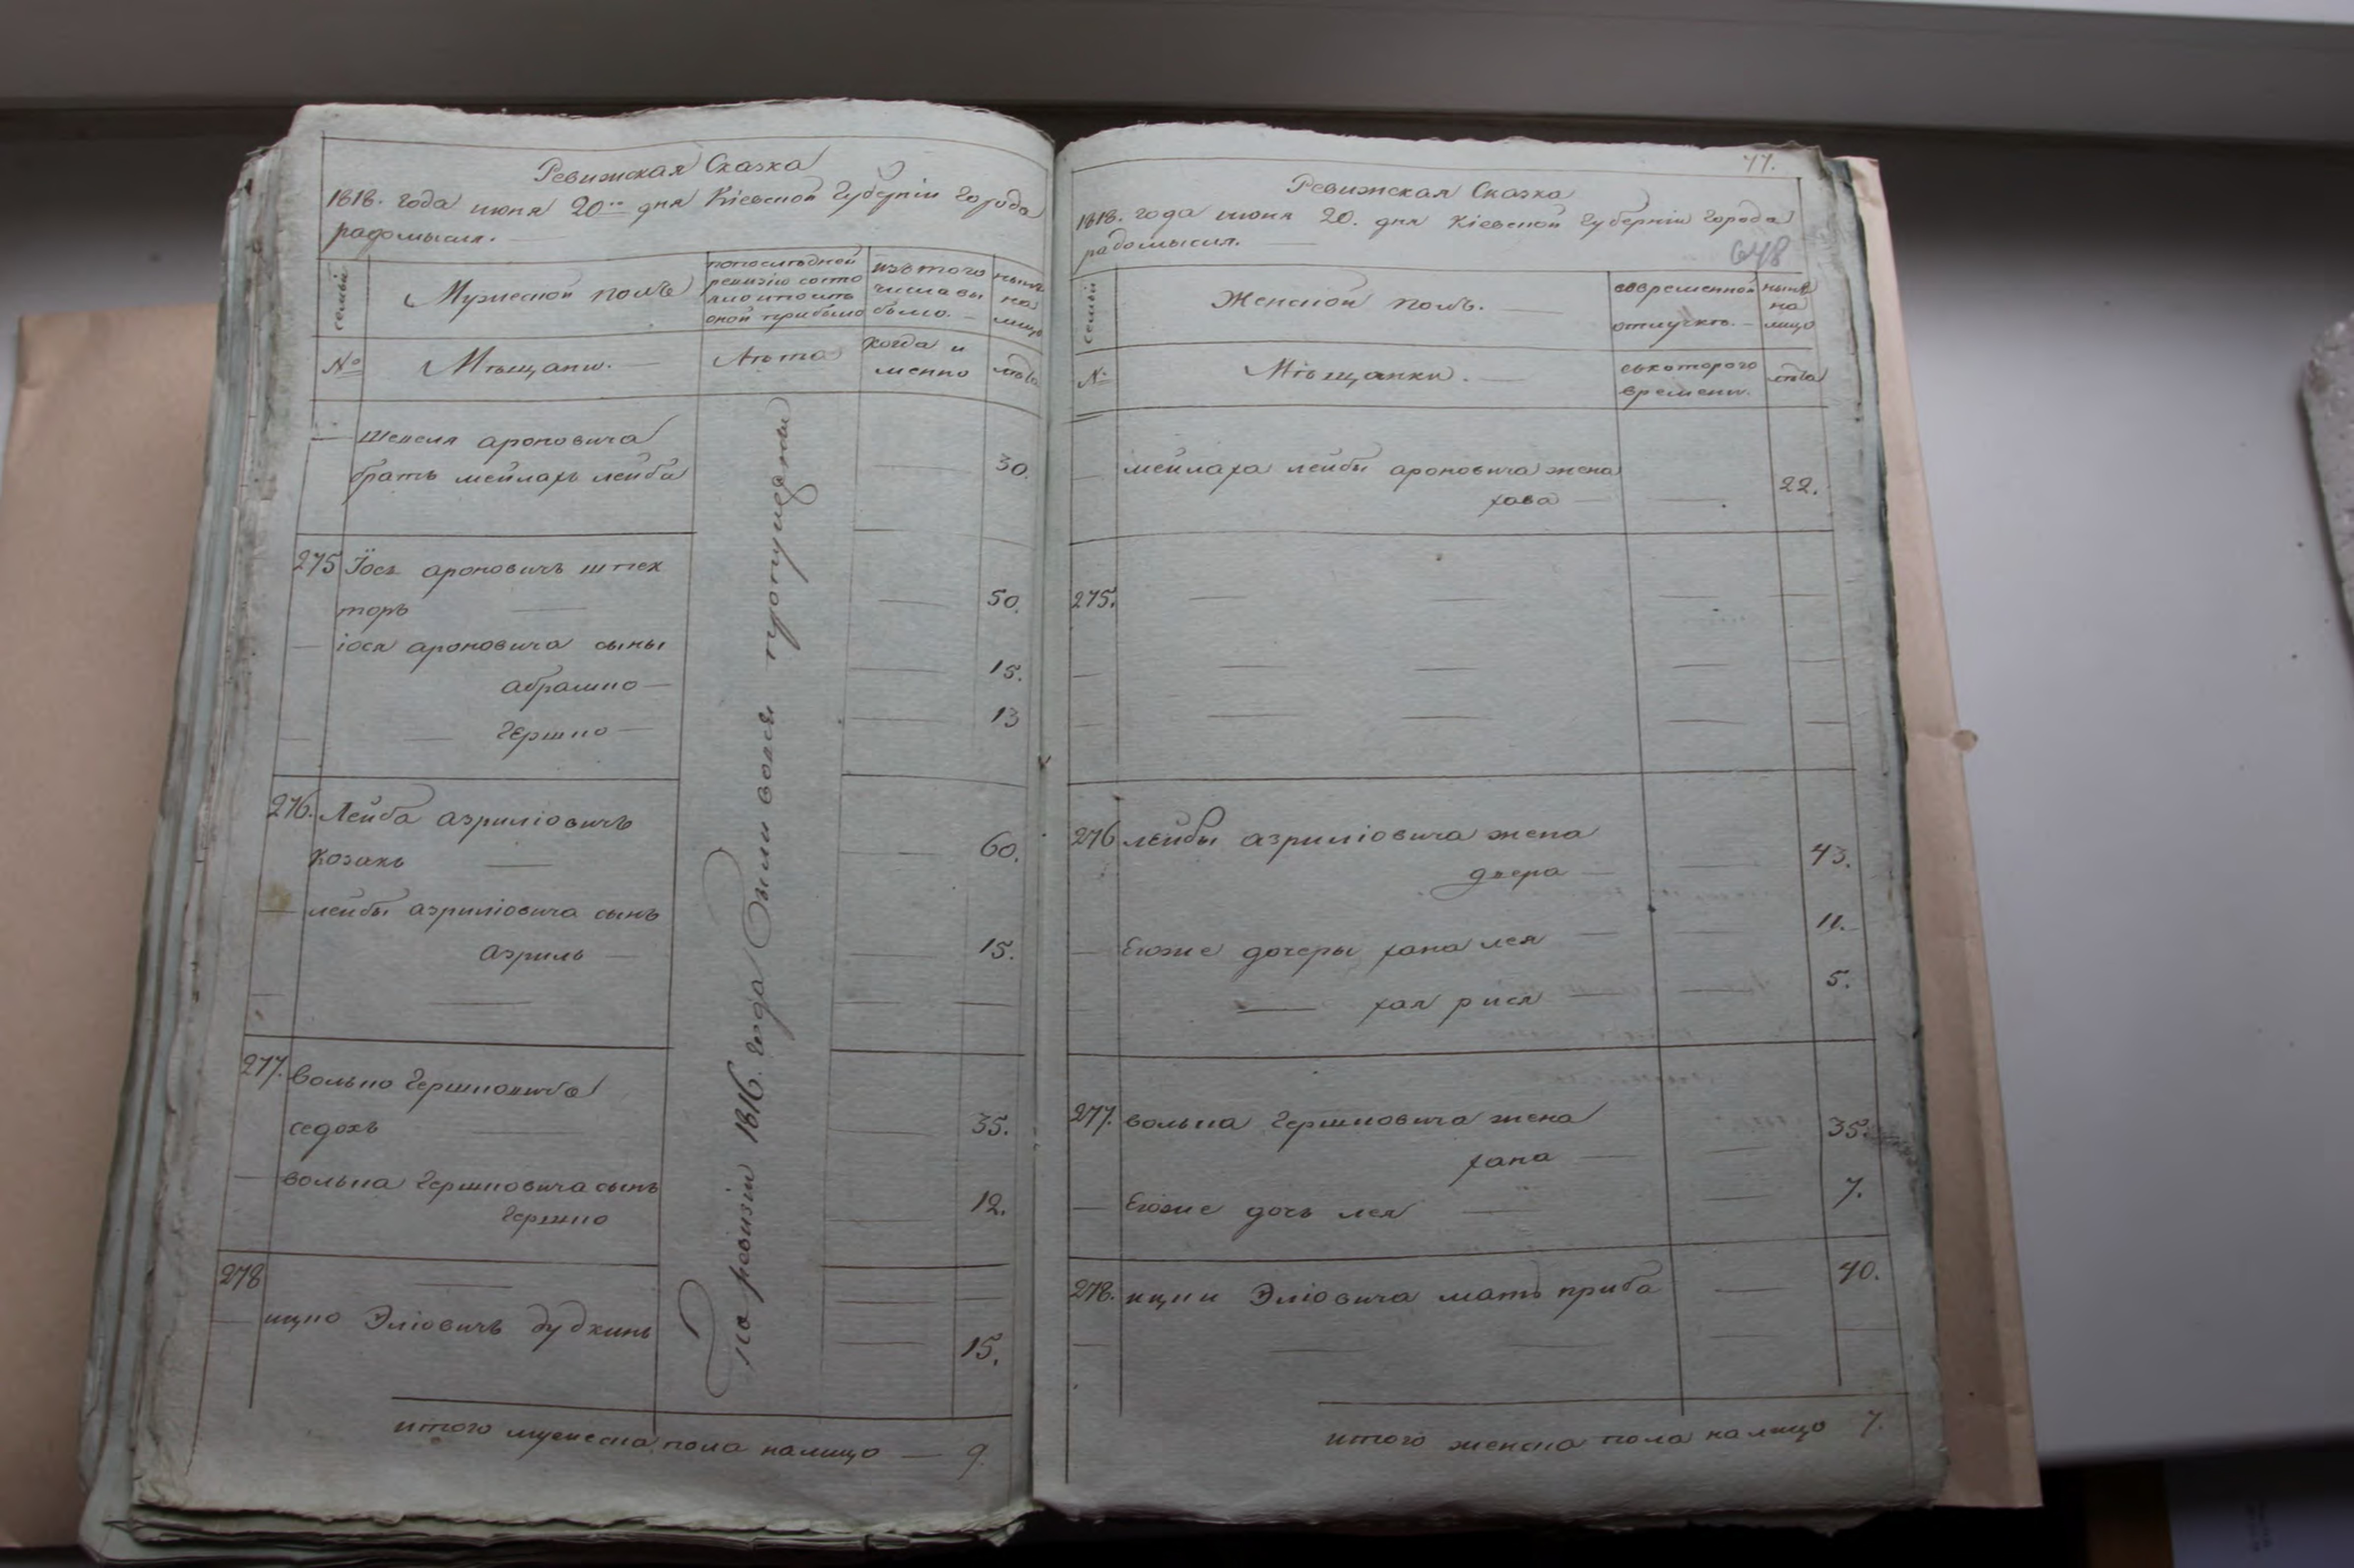 Ревижская Сказка
1818. года июня 20го дня Кіевской Губерніи города
радомысля.
семьи
Мужеской полъ
попоследней
ревизіи состо
яло ипосле
оной прибыло
изъ того
числа вы
было.
ныне
на
лицо
№
Мѣщани.
Лѣта
когда и
менно
лѣта
шепсля ароновича
братъ мейлахъ лейба
30.
275 Іось ароновичъ шпек
торъ
50.
іося ароновича сыны
абрамко
15.
Гершко
13
276. Лейба азриліовичъ
козакъ
60.
лейбы азриліовича сынъ
азриль
15.
277. Волько Гершковичъ
седохъ
35.
волька Гершковича сынъ
Гершко
12.
278
ицко Эліовичъ дудкинъ
15.
По ревизіи 1816. года были вовся пропущены
итого мужеска пола налицо — 9.
77.
Ревижская Сказка
1818. года июня 20. дня Кіевской Губерніи города
радомысля.
648
семьи
Женской полъ.
вовременной
отлучке.
ныне
на
лицо
№
Мѣщанки.
съкоторого
времени.
лѣта
мейлаха лейбы ароновича жена
хава
22.
275.
276 лейбы азриліовича жена
двера
43.
Егоже дочеры хана лея
11.
хая рися
5.
277. волька Гершковича жена
хана
35.
Егоже дочь лея
7.
278. ицки Эліовича мать приба
40.
итого женска пола налицо 7.